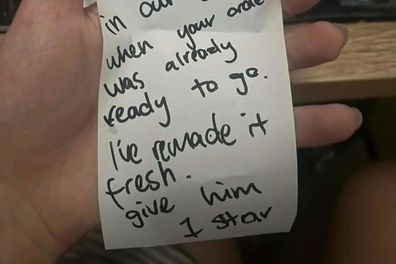 in our
when your order
was already
ready to go.
I've remade it
fresh.
give him
1 star